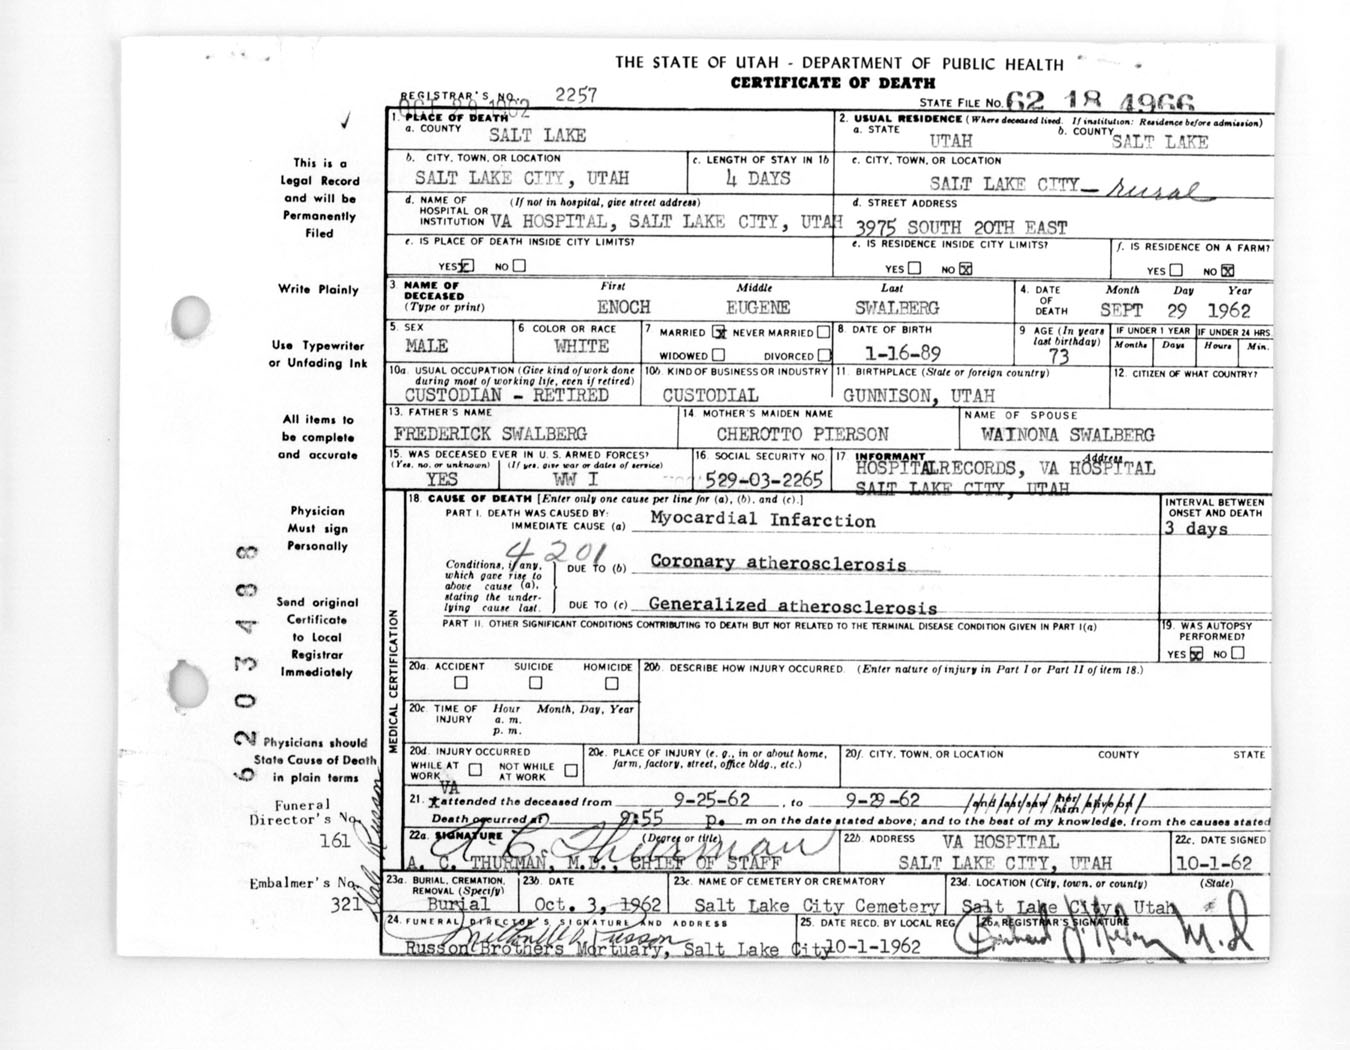 THE STATE OF UTAH - DEPARTMENT OF PUBLIC HEALTH
CERTIFICATE OF DEATH
REGISTRAR'S NO. 2257
OCT 29 1962
STATE FILE NO. 62 18 4966
1. PLACE OF DEATH
a. COUNTY SALT LAKE
2. USUAL RESIDENCE (Where deceased lived. If institution: Residence before admission)
a. STATE UTAH b. COUNTY SALT LAKE
b. CITY, TOWN, OR LOCATION SALT LAKE CITY, UTAH
c. LENGTH OF STAY IN 1b 4 DAYS
c. CITY, TOWN, OR LOCATION SALT LAKE CITY - rural
d. NAME OF HOSPITAL OR INSTITUTION (If not in hospital, give street address) VA HOSPITAL, SALT LAKE CITY, UTAH
d. STREET ADDRESS 3975 SOUTH 20TH EAST
e. IS PLACE OF DEATH INSIDE CITY LIMITS?
YES X NO
e. IS RESIDENCE INSIDE CITY LIMITS?
YES NO X
f. IS RESIDENCE ON A FARM?
YES NO X
3 NAME OF DECEASED (Type or print)
First Middle Last
ENOCH EUGENE SWALBERG
4. DATE OF DEATH Month Day Year
SEPT 29 1962
5. SEX MALE
6 COLOR OR RACE WHITE
7 MARRIED X NEVER MARRIED
WIDOWED DIVORCED
8 DATE OF BIRTH 1-16-89
9 AGE (In years last birthday) 73
IF UNDER 1 YEAR Months Days
IF UNDER 24 HRS. Hours Min.
10a. USUAL OCCUPATION (Give kind of work done during most of working life, even if retired)
CUSTODIAN - RETIRED
10b. KIND OF BUSINESS OR INDUSTRY CUSTODIAL
11. BIRTHPLACE (State or foreign country) GUNNISON, UTAH
12. CITIZEN OF WHAT COUNTRY?
13. FATHER'S NAME FREDERICK SWALBERG
14 MOTHER'S MAIDEN NAME CHEROTTO PIERSON
NAME OF SPOUSE WAINONA SWALBERG
15. WAS DECEASED EVER IN U. S. ARMED FORCES?
(Yes, no, or unknown) (If yes, give war or dates of service)
YES WW I
16. SOCIAL SECURITY NO 529-03-2265
17 INFORMANT Address
HOSPITAL RECORDS, VA HOSPITAL
SALT LAKE CITY, UTAH
18. CAUSE OF DEATH [Enter only one cause per line for (a), (b), and (c).]
INTERVAL BETWEEN ONSET AND DEATH
PART I. DEATH WAS CAUSED BY:
IMMEDIATE CAUSE (a) Myocardial Infarction 3 days
4201
Conditions, if any, which gave rise to above cause (a), stating the underlying cause last.
DUE TO (b) Coronary atherosclerosis
DUE TO (c) Generalized atherosclerosis
PART II. OTHER SIGNIFICANT CONDITIONS CONTRIBUTING TO DEATH BUT NOT RELATED TO THE TERMINAL DISEASE CONDITION GIVEN IN PART I(a)
19. WAS AUTOPSY PERFORMED?
YES X NO
MEDICAL CERTIFICATION
20a. ACCIDENT SUICIDE HOMICIDE
20b. DESCRIBE HOW INJURY OCCURRED. (Enter nature of injury in Part I or Part II of item 18.)
20c. TIME OF INJURY Hour Month, Day, Year
a. m.
p. m.
20d. INJURY OCCURRED
WHILE AT WORK NOT WHILE AT WORK
20e. PLACE OF INJURY (e. g., in or about home, farm, factory, street, office bldg., etc.)
20f. CITY, TOWN, OR LOCATION COUNTY STATE
VA
21. I attended the deceased from 9-25-62, to 9-29-62
Death occurred at 9:55 p. m on the date stated above; and to the best of my knowledge, from the causes stated
22a. SIGNATURE (Degree or title)
A. C. Thurman
A. C. THURMAN, M.D., CHIEF OF STAFF
22b. ADDRESS VA HOSPITAL
SALT LAKE CITY, UTAH
22c. DATE SIGNED
10-1-62
23a. BURIAL, CREMATION, REMOVAL (Specify) Burial
23b. DATE Oct. 3, 1962
23c. NAME OF CEMETERY OR CREMATORY Salt Lake City Cemetery
23d. LOCATION (City, town, or county) (State)
Salt Lake City, Utah
24. FUNERAL DIRECTOR'S SIGNATURE AND ADDRESS
Russon Brothers Mortuary, Salt Lake City
25. DATE RECD. BY LOCAL REG. 10-1-1962
26. REGISTRAR'S SIGNATURE
M.D
This is a
Legal Record
and will be
Permanently
Filed
Write Plainly
Use Typewriter
or Unfading Ink
All items to
be complete
and accurate
Physician
Must sign
Personally
Send original
Certificate
to Local
Registrar
Immediately
Physicians should
State Cause of Death
in plain terms
Funeral
Director's No.
161
Embalmer's No.
321
Russon